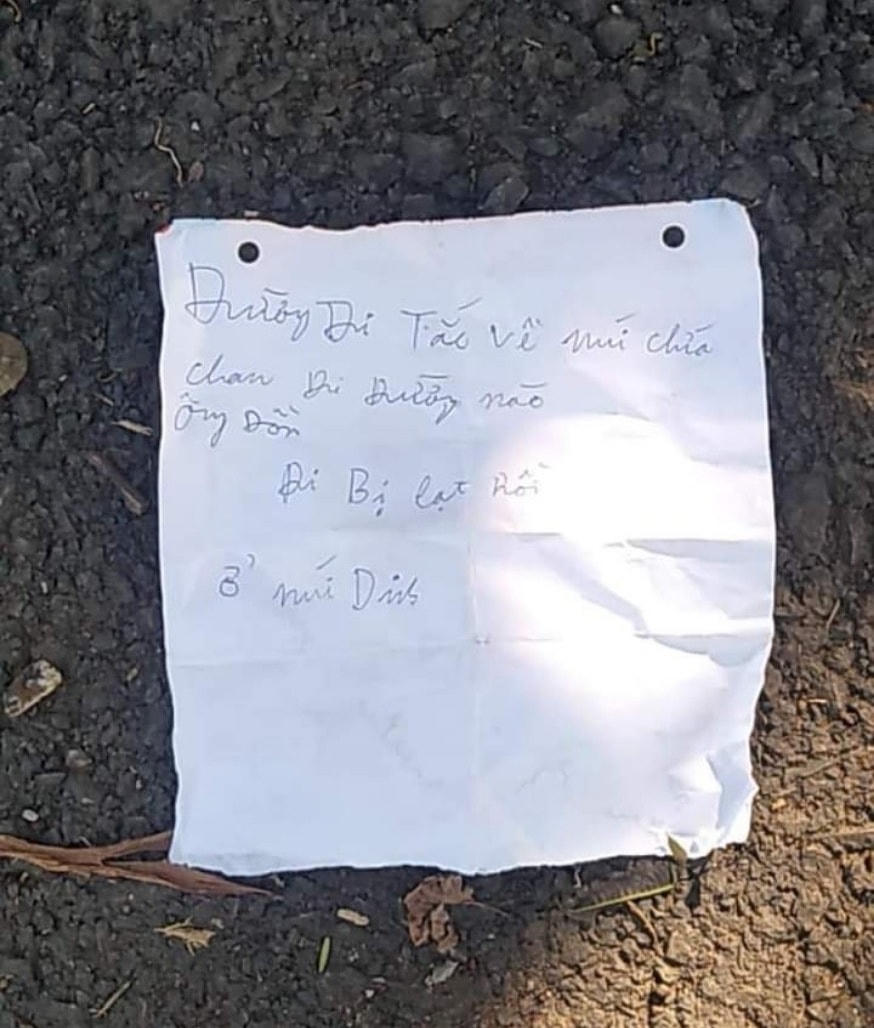 Đường Đi Tắc về núi chứa
chan Đi Đường nào
Ông Đồn
Đi Bị lạt Rồi
ở núi Dinh